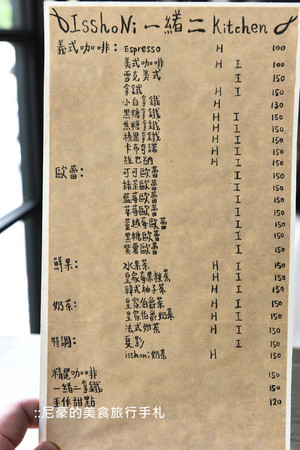 IsshoNi 一緒二 Kitchen
義式咖啡: Espresso H 100
美式咖啡 H I 100
雪克美式 I 150
拿鐵 H I 150
小白拿鐵 H 130
黑糖拿鐵 H I 150
焦糖拿鐵 H I 150
榛果拿鐵 H I 150
卡布奇諾 H I 150
維也納 H I 150
歐蕾: 可可歐蕾 I 150
抹茶歐蕾 I 150
藍莓歐蕾 I 150
草莓歐蕾 I 150
蔓越莓歐蕾 I 150
黑糖歐蕾 I 150
紫薯歐蕾 I 150
鮮果: 水果茶 H I 150
皇家莓果粒茶 H I 150
韓式柚子茶 H I 150
奶茶: 皇家伯爵茶 H I 150
皇家伯爵奶茶 H I 150
法式奶茶 H I 150
特調: 夏影 I 150
isshoni奶茶 H 150
精選咖啡 150
一緒二拿鐵 150
手作甜點 120
::尼豪的美食旅行手札